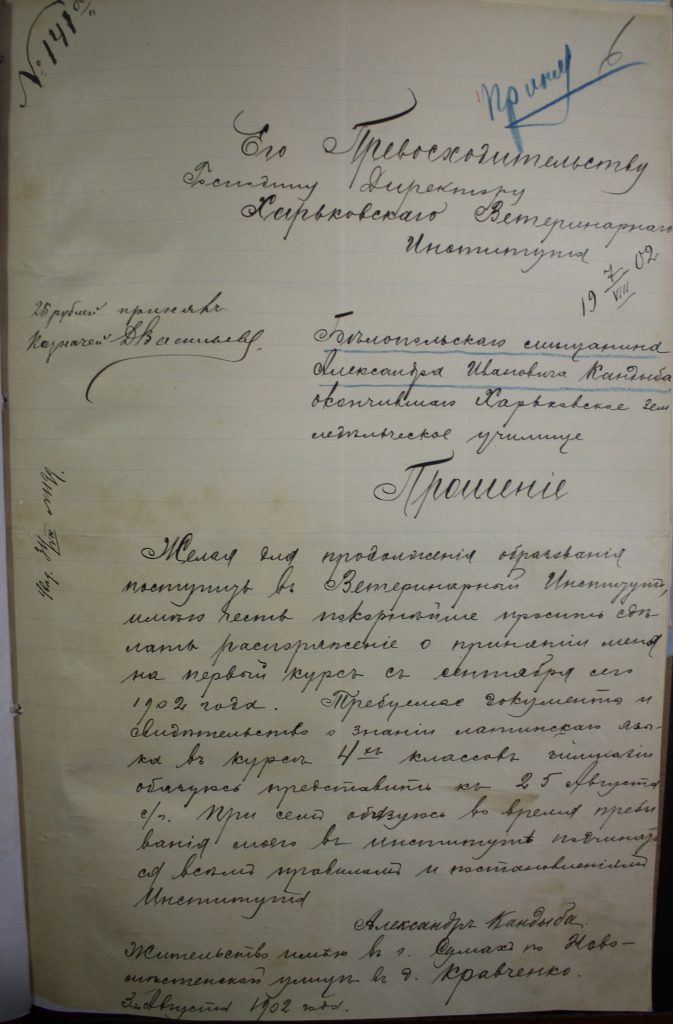 № 141
6
Принят
Его Превосходительству
Господину Директору
Харьковскаго Ветеринарнаго
Института
19 7/VIII 02
25 рублей принялъ
Казначей ДВасильевъ
Бѣлопольскаго мѣщанина
Александра Ивановича Кандыба
окончившаго Харьковское зем
ледѣльческое училище
Прошеніе
Желая для продолженія образованія
поступить въ Ветеринарный Институтъ,
имѣю честь покорнѣйше просить сдѣ-
лать распоряженіе о принятіи меня
на первый курсъ съ сентября сего
1902 года. Требуемые документы и
свидѣтельство о знаніи латинскаго язы-
ка въ курсѣ 4хъ классовъ гимназіи
обязуюсь представить къ 25 Августа
с/г. При семъ обязуюсь во время пребы
ванія моего въ институтѣ подчинять
ся всѣмъ правиламъ и постановленіямъ
Института
Александръ Кандыба.
Жительство имѣю въ г. Сумахъ по Ново-
мѣстенской улицѣ въ д. Кравченко.
3го Августа 1902 года.